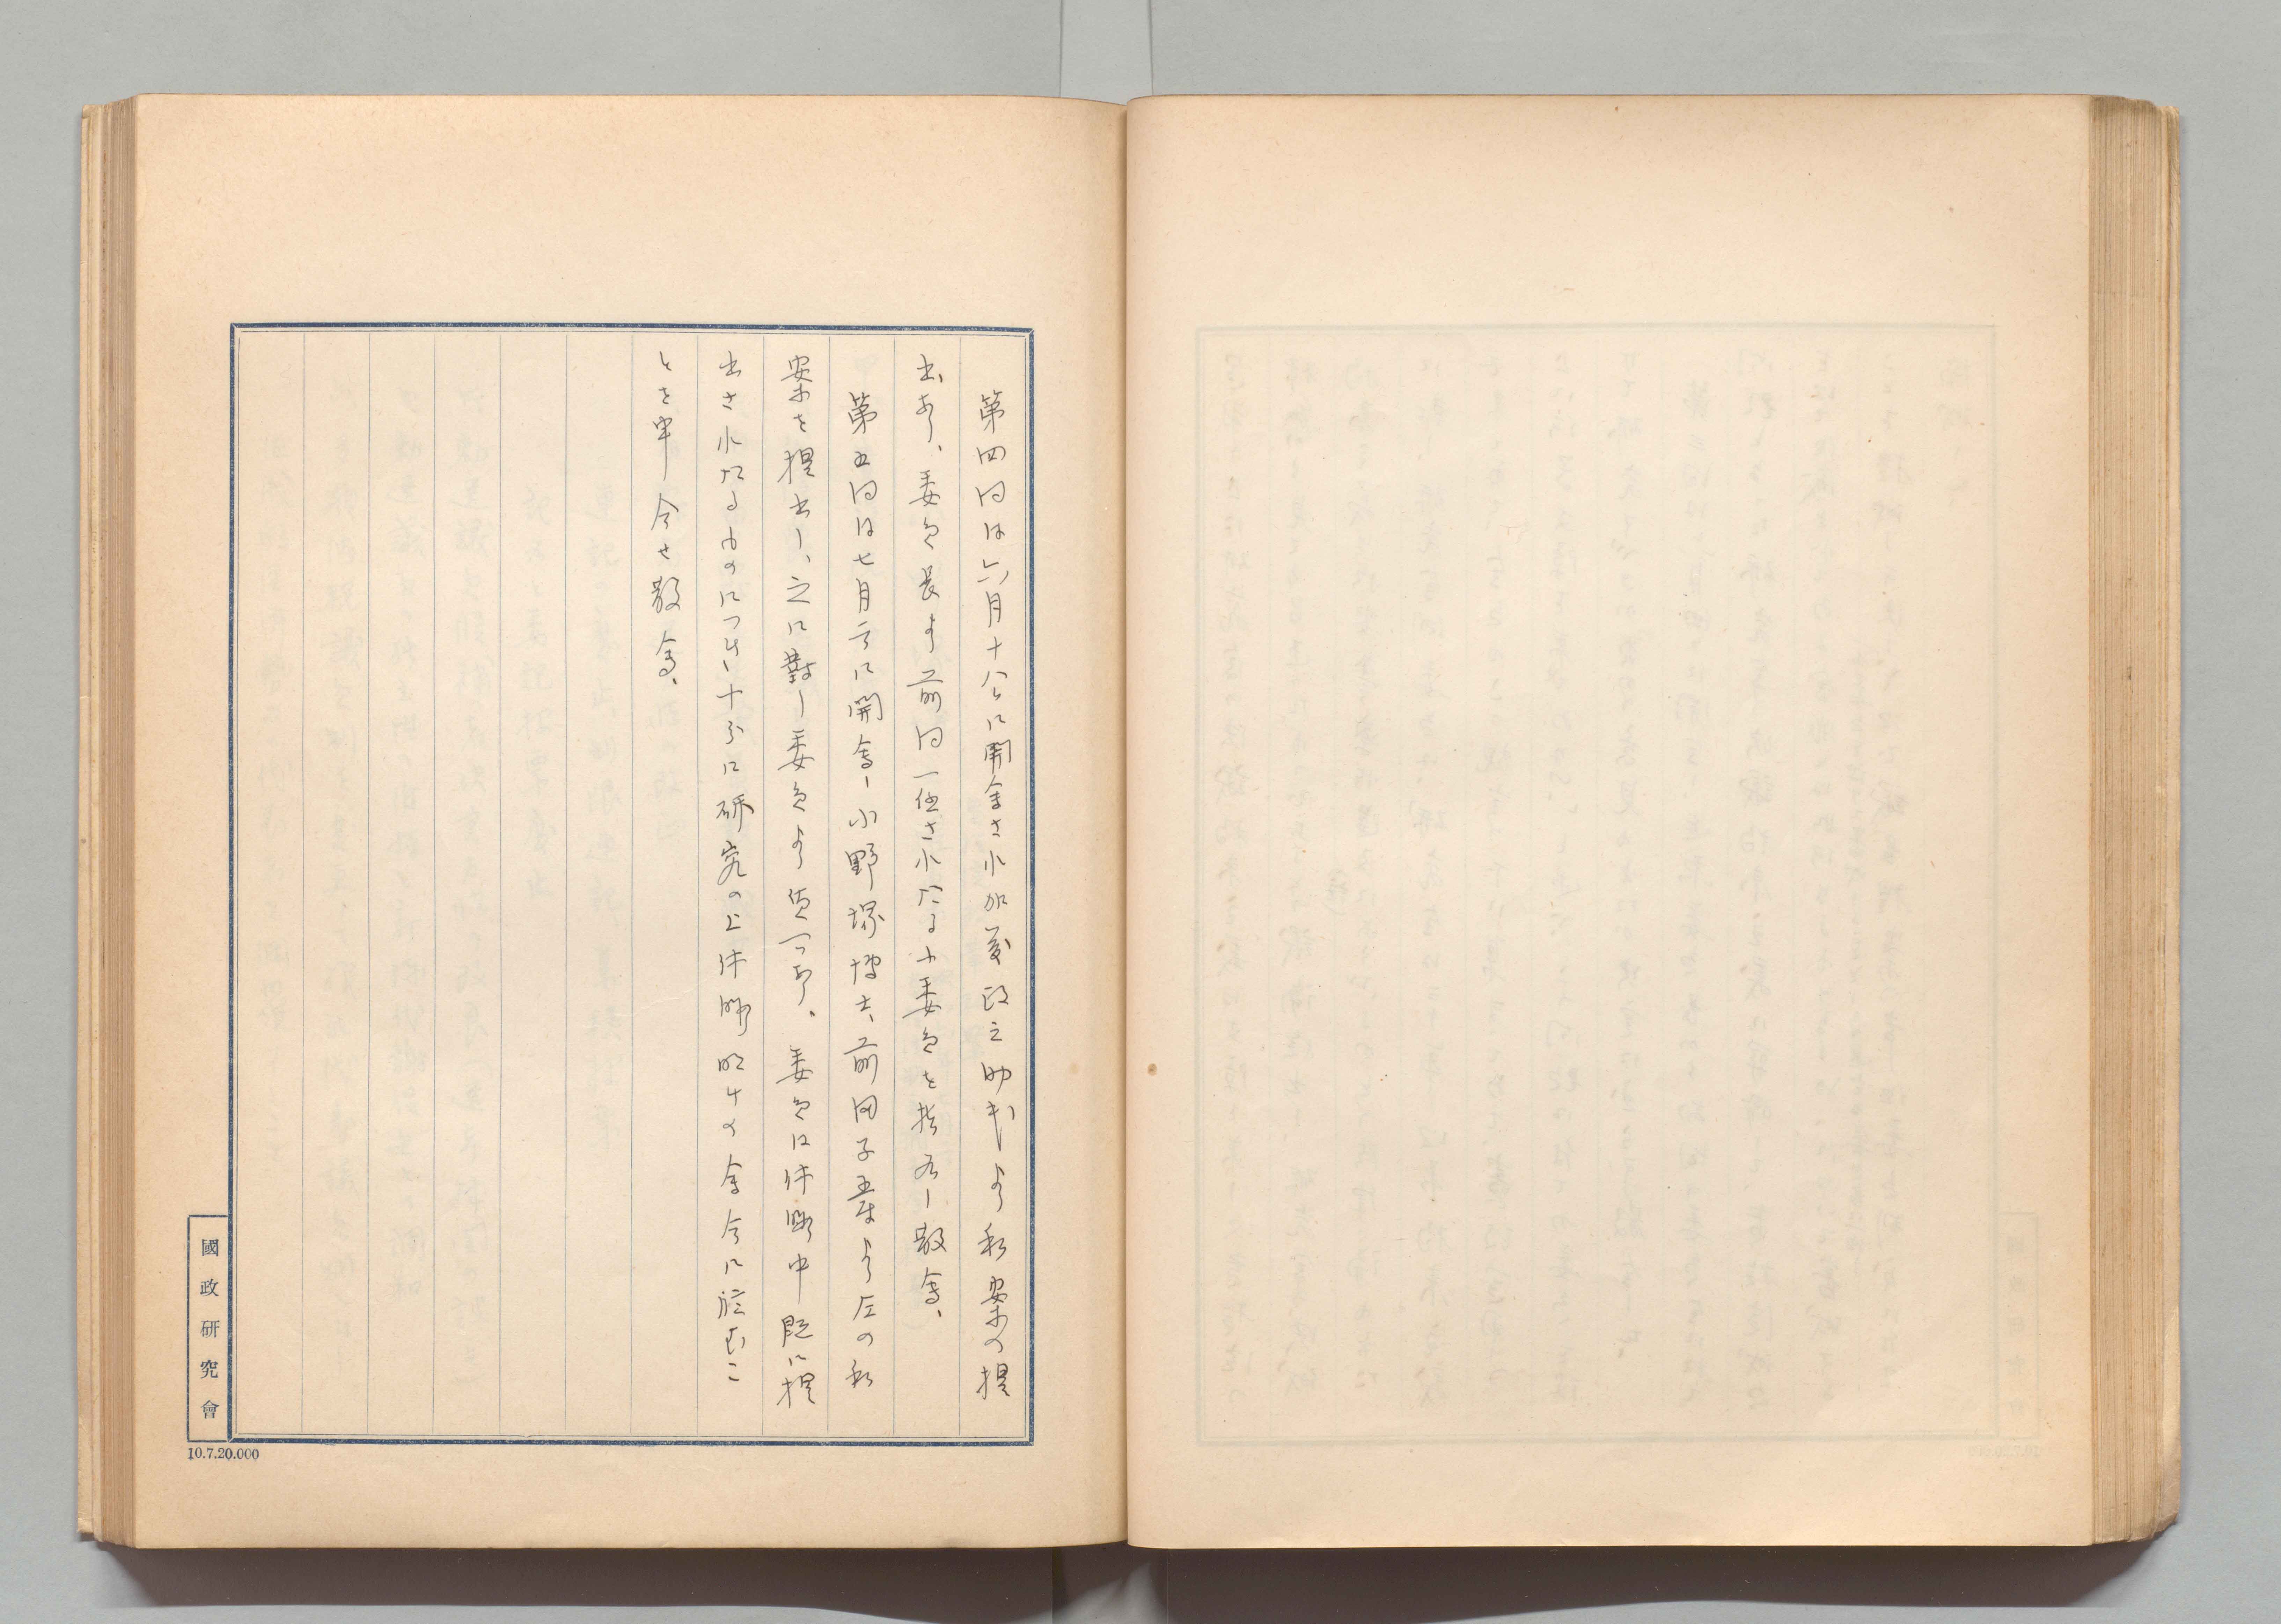 第四回は六月十八日に開会され加藤政之助氏より私案の提
出あり、委員長より前回一任されたる小委員を指名し散会、
第五回は七月二日に開会し小野塚博士、前田子爵より左の私
案を提出し、之に対し委員より質問あり。委員は休暇中既に提
出されたるものにつき十分に研究の上休暇明けの会合に臨むこ
とを申し合せ散会、
國政研究會
10.7.20.000